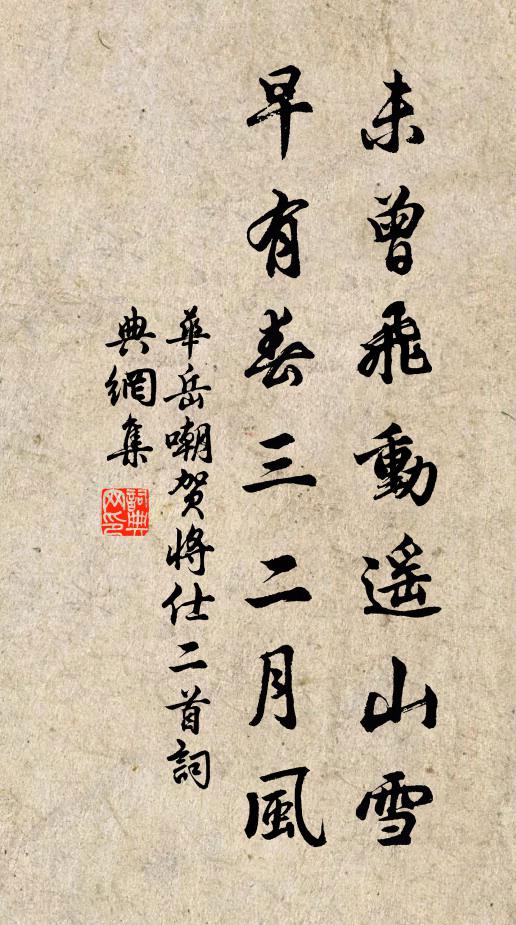 未曾飛動遥山雪
早有春三二月風
華岳嘲贺將仕二首詞
典網集
詞典
网印